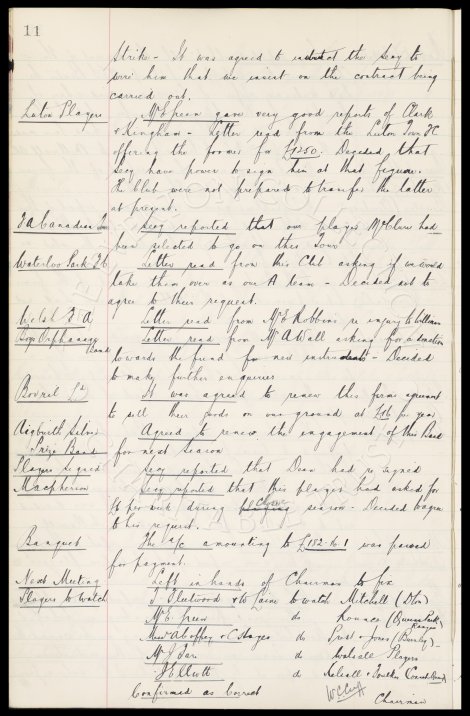 11
Strike - It was agreed to instruct the Secy to
wire him that we insist on the contract being
carried out.
Luton Players Mr Green gave very good reports of Clark
& Kingham - Letter read from the Luton Town FC
offering the former for £1250. Decided that
Secy have power to sign him at that figure.
The club were not prepared to transfer the latter
at present.
F A Canadian Tour Secy reported that our player McClure had
been selected to go on this Tour
Waterloo Park FC Letter read from this Club asking if we would
take them over as our A team - Decided not to
agree to their request.
Welsh F A Letter read from Mr E Robbins re injury to Williams
Boys Orphanage Band Letter read from Mr A Wall asking for a donation
towards the fund for new instruments - Decided
to make further enquiries
Bovril Ld It was agreed to renew this firms agreement
to sell their goods on our ground at £16 per year
Aigburth Silver Prize Band Agreed to renew the engagement of this Band
for next season
Players signed Secy reported that Dean had re signed
Macpherson Secy reported that this player had asked for
per week during close season - Decided to agree
to his request.
Banquet The a/c amounting to £152-16-1 was passed
for payment.
Next Meeting Left in hands of Chairman to fix
Players to watch Fleetwood & to watch Mitchell
Mr E Green do Rounce (Queens Park Rangers)
Messrs A Coffey & C Hayes do Prest & Jones (Burnley)
Mr do Walsall Players
J Elliott do
Confirmed as Correct
W C Cuff
Chairman